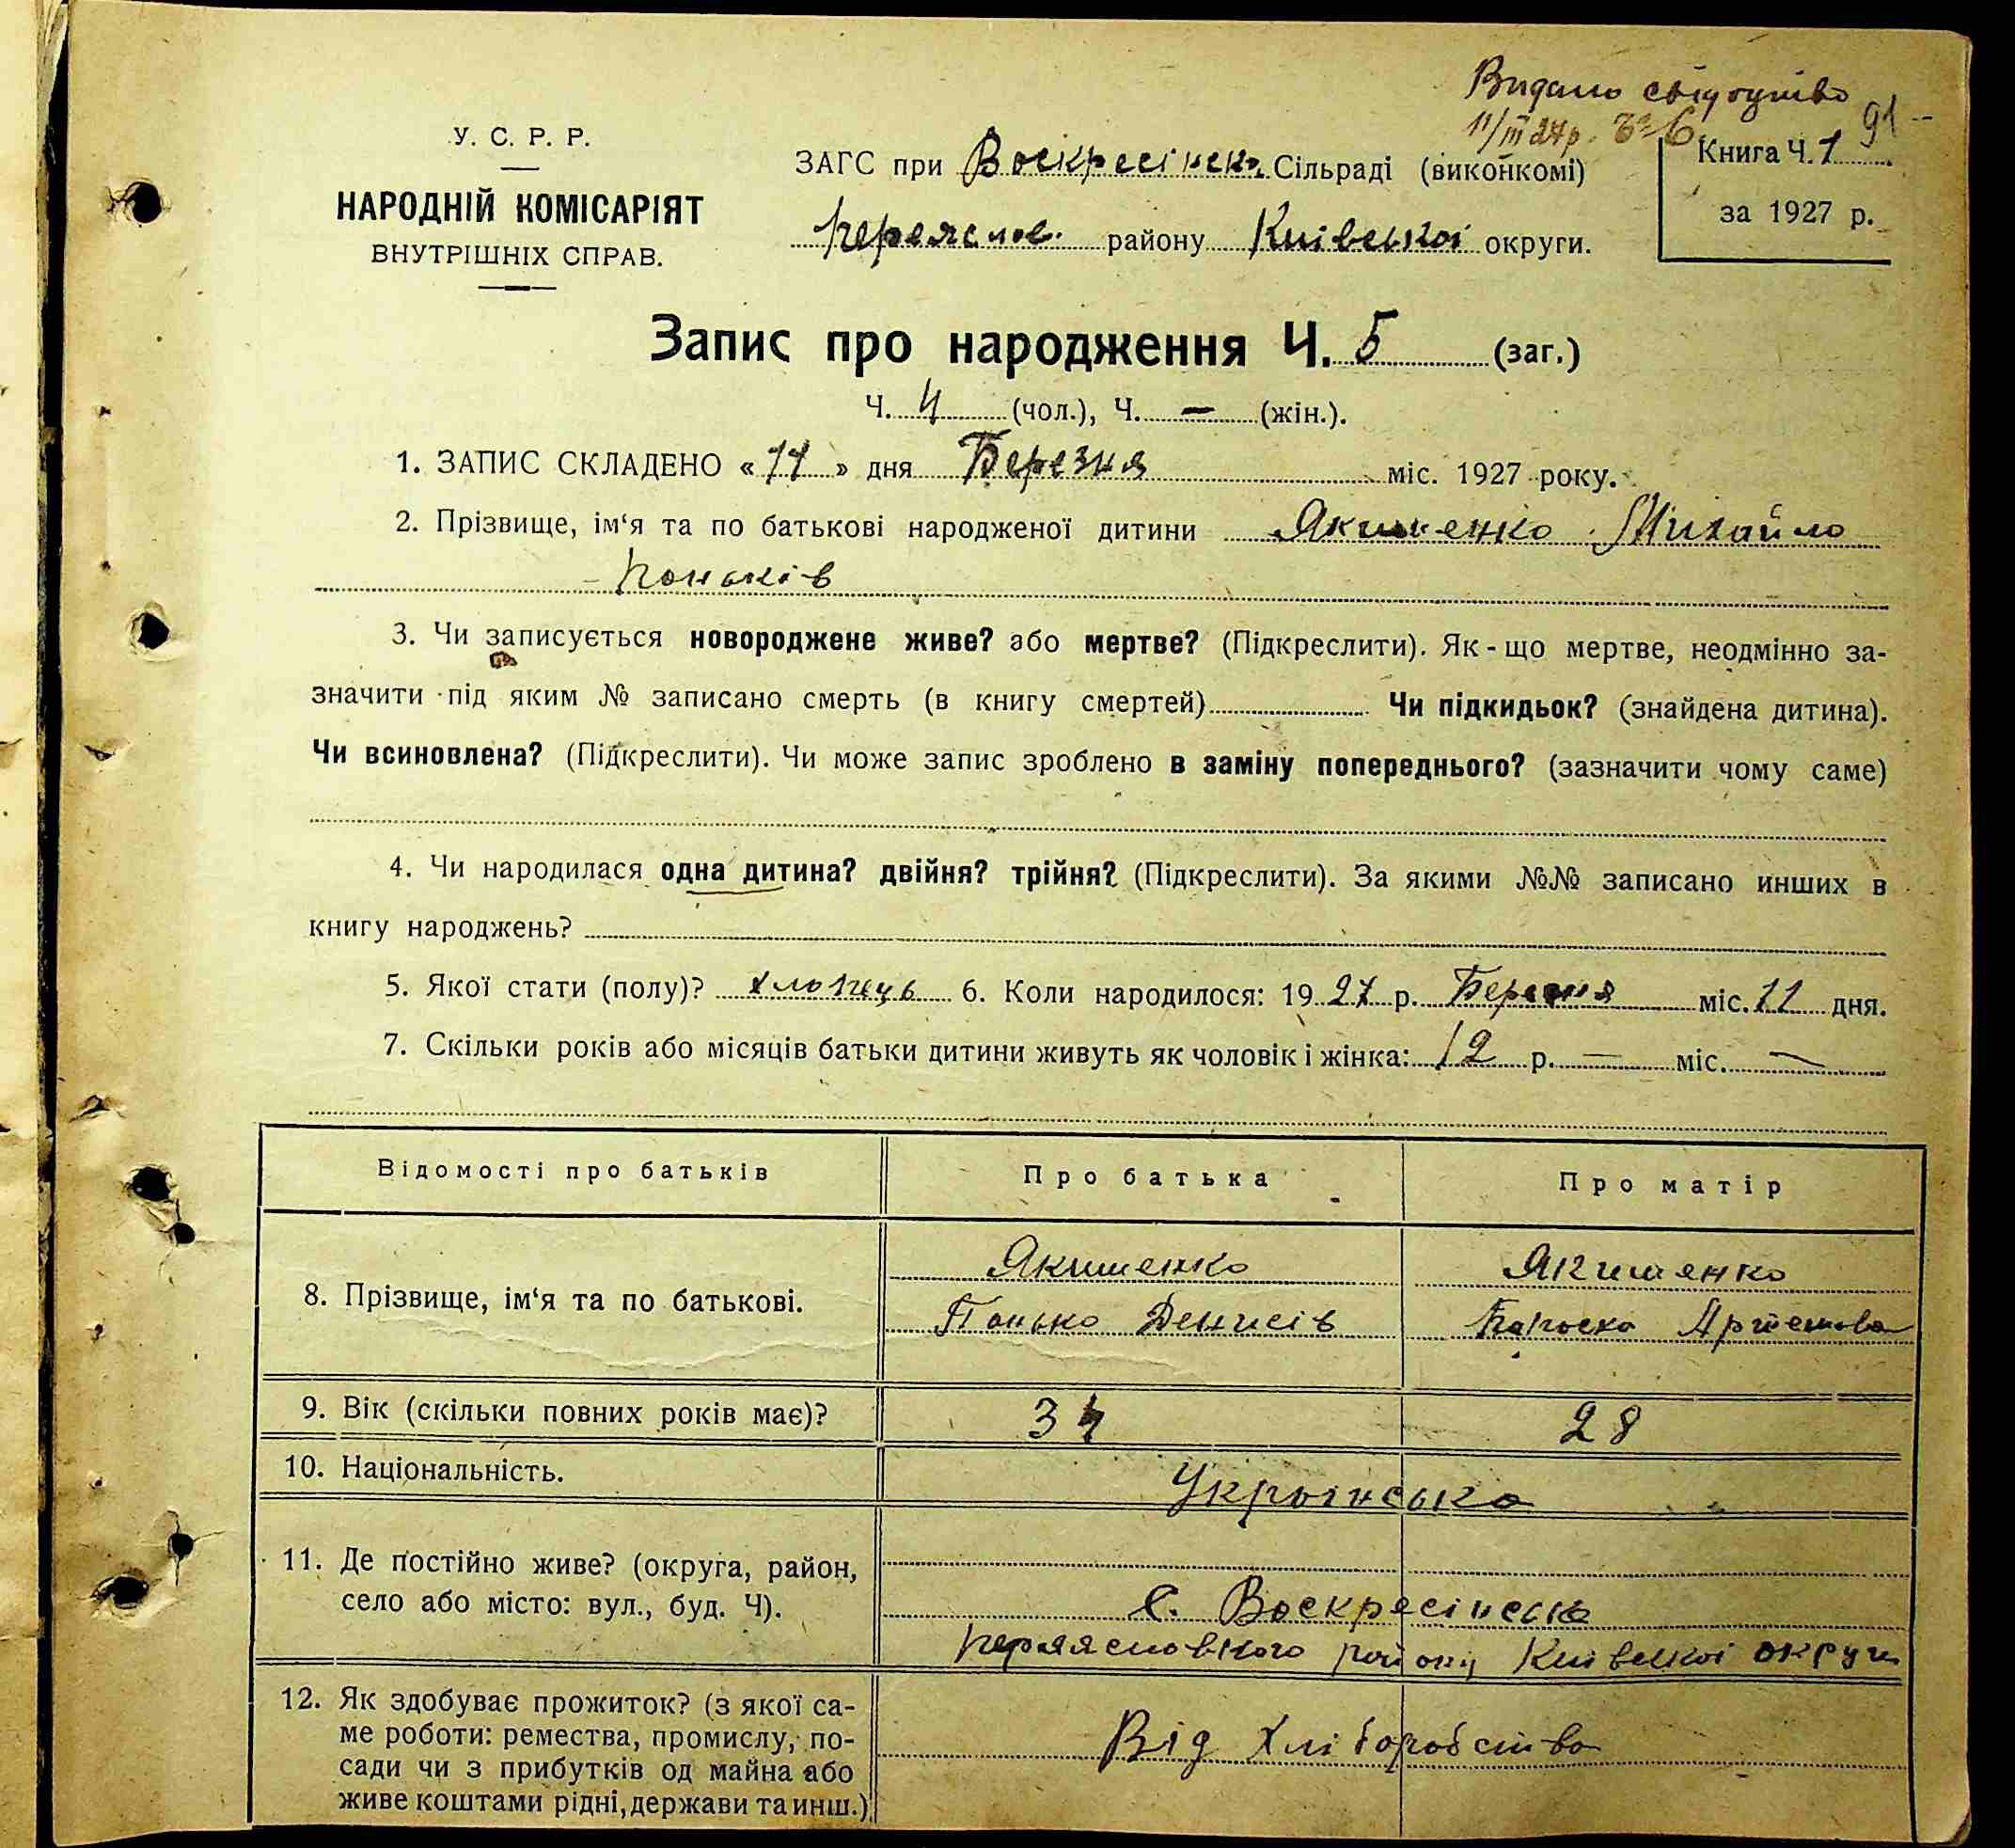 Видано свідоцтво
11/III 27р. Ч. 6
91
У. С. Р. Р.
НАРОДНІЙ КОМІСАРІЯТ
ВНУТРІШНІХ СПРАВ.
ЗАГС при Воскресінск. Сільраді (виконкомі)
Переяслов. району Київської округи.
Книга Ч. 1
за 1927 р.
Запис про народження Ч. 5 (заг.)
Ч. 4 (чол.), Ч. — (жін.).
1. ЗАПИС СКЛАДЕНО « 11 » дня Березня міс. 1927 року.
2. Прізвище, ім‘я та по батькові народженої дитини Якименко Михайло
Паньків
3. Чи записується новороджене живе? або мертве? (Підкреслити). Як - що мертве, неодмінно за-
значити під яким № записано смерть (в книгу смертей) Чи підкидьок? (знайдена дитина).
Чи всиновлена? (Підкреслити). Чи може запис зроблено в заміну попереднього? (зазначити чому саме)
4. Чи народилася одна дитина? двійня? трійня? (Підкреслити). За якими №№ записано инших в
книгу народжень?
5. Якої стати (полу)? хлопець 6. Коли народилося: 19 27 р. Березня міс. 11 дня.
7. Скільки років або місяців батьки дитини живуть як чоловік і жінка: 12 р. — міс. —
Відомості про батьків Про батька Про матір
8. Прізвище, ім‘я та по батькові.
Якименко
Панько Денисів
Якименко
Параска Артемова
9. Вік (скільки повних років має)? 34 28
10. Національність. Українська
11. Де постійно живе? (округа, район,
село або місто: вул., буд. Ч).
с. Воскресінська
Переясловского району Київської округи
12. Як здобуває прожиток? (з якої са-
ме роботи: ремества, промислу, по-
сади чи з прибутків од майна або
живе коштами рідні, держави та инш.)
Від хліборобства